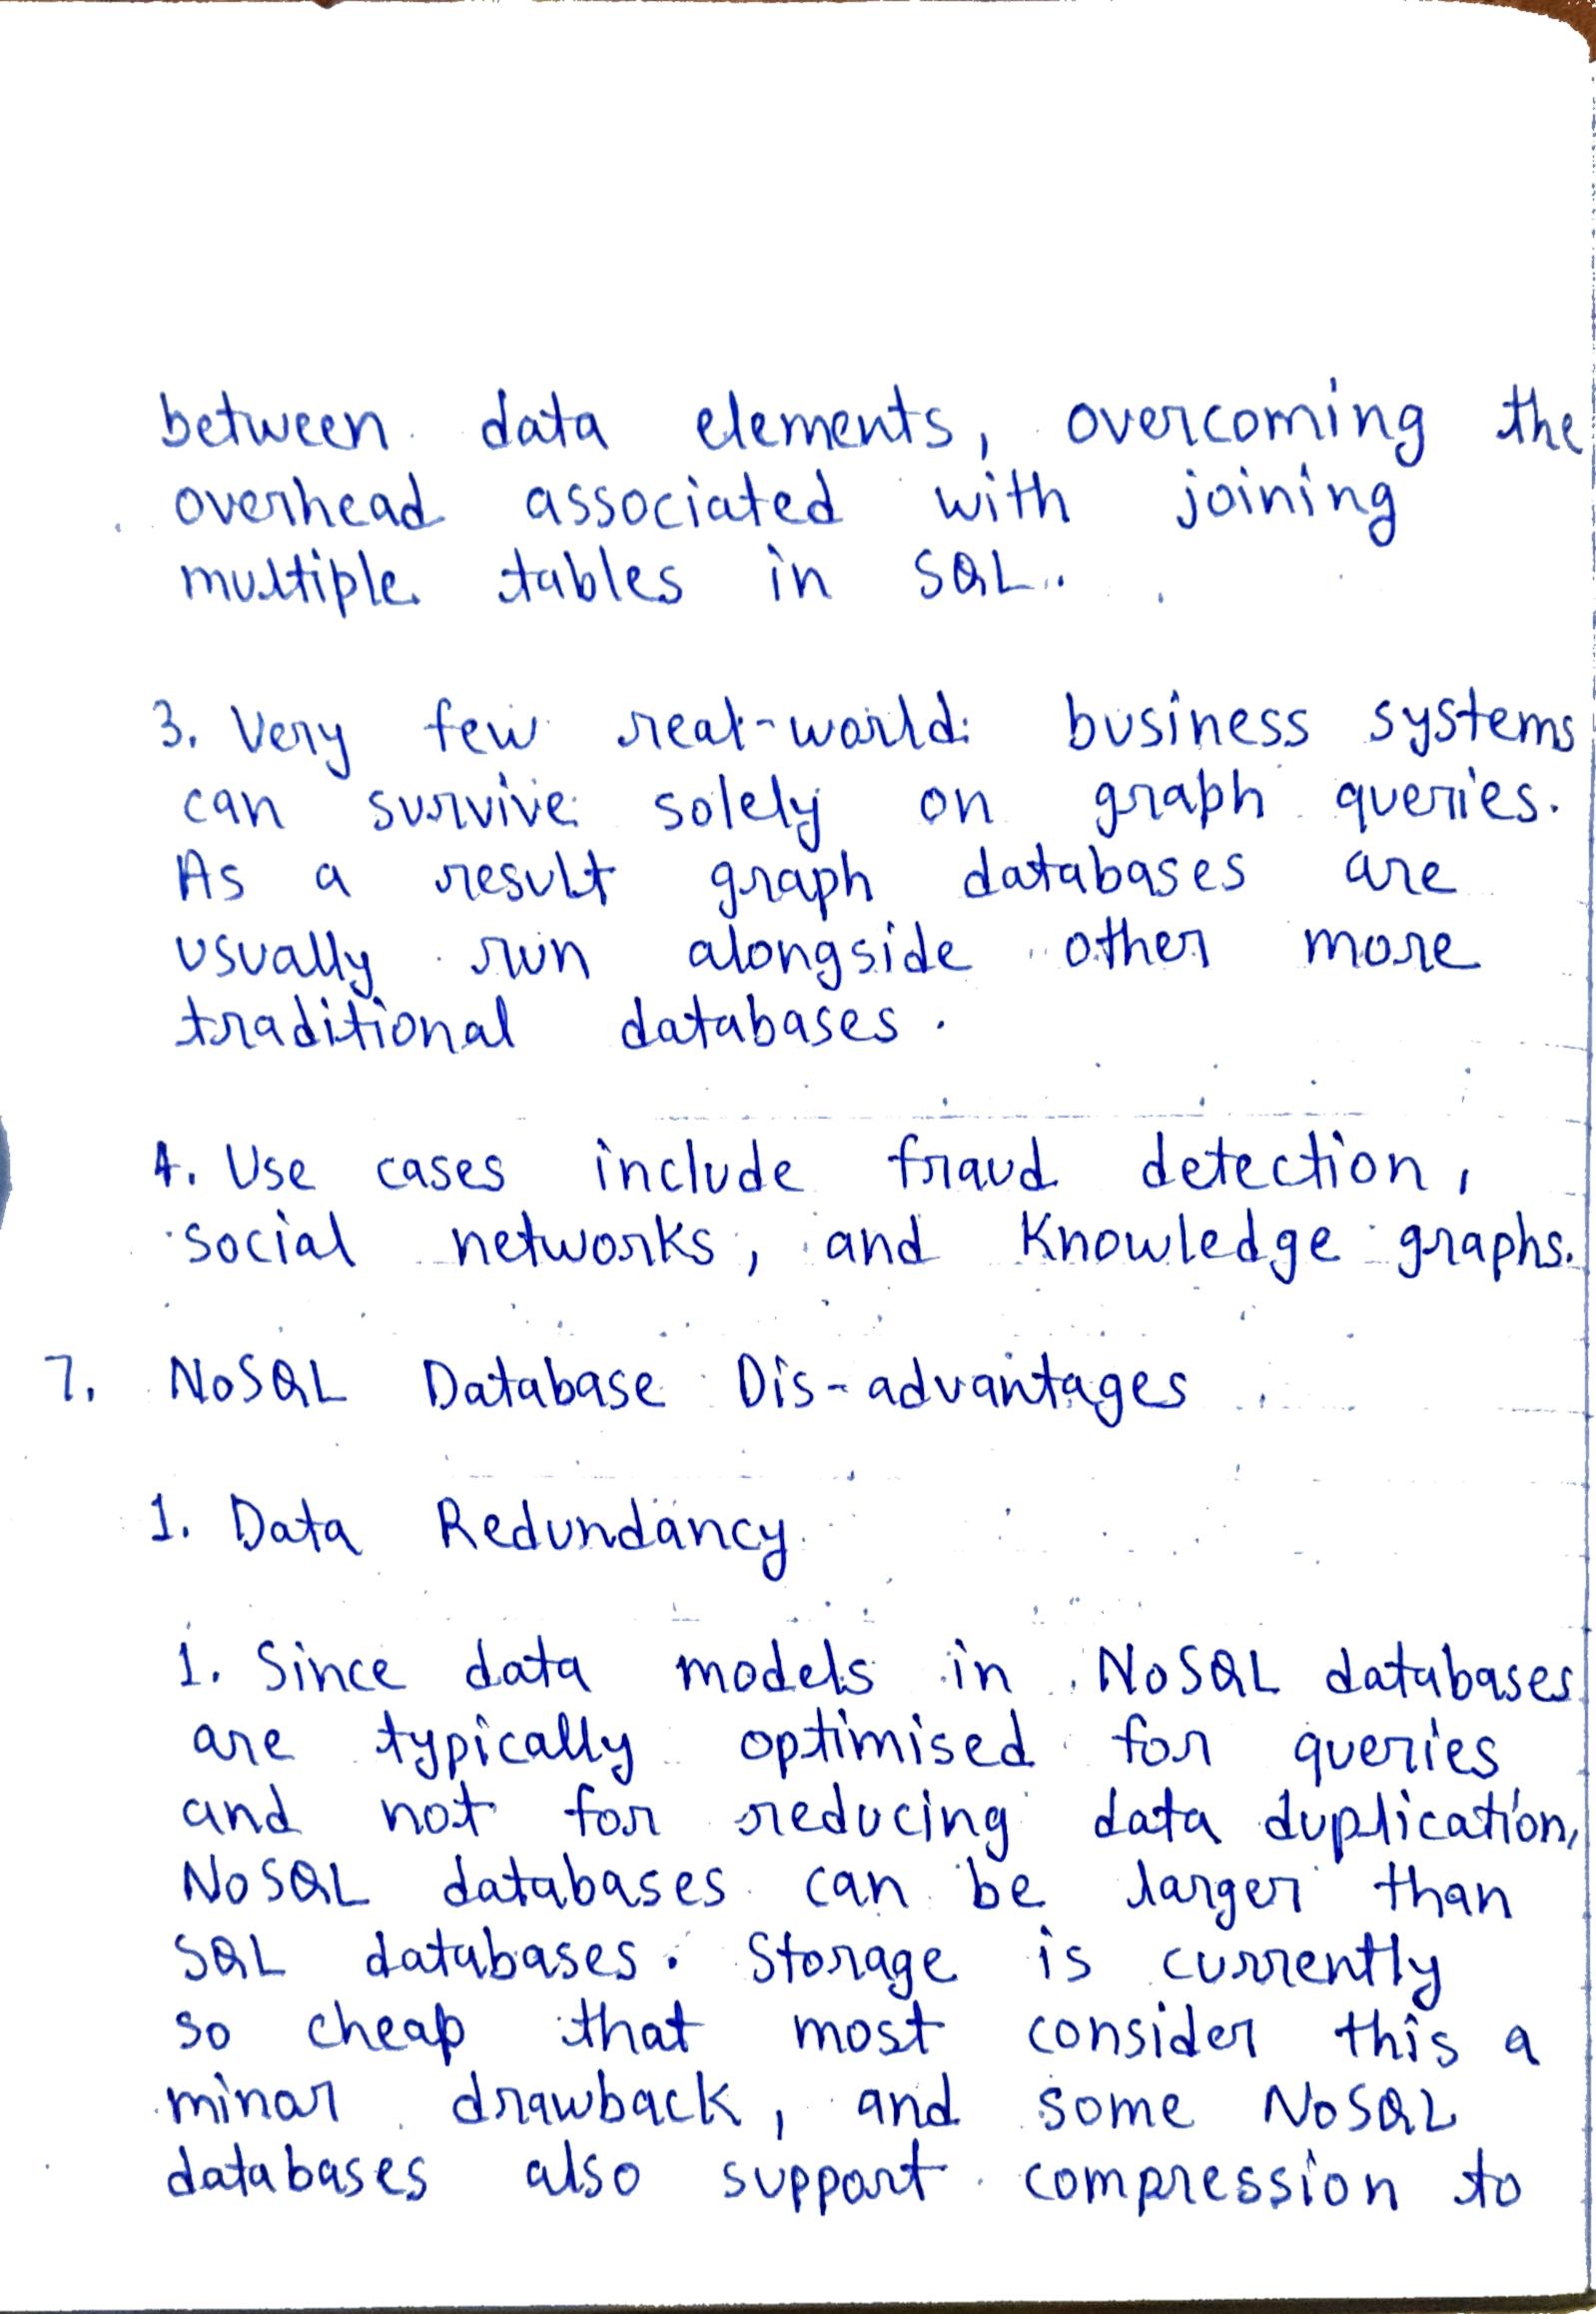 between data elements, overcoming the
overhead associated with joining
multiple tables in SQL.
3. Very few real-world business systems
can survive solely on graph queries.
As a result graph databases are
usually run alongside other more
traditional databases.
4. Use cases include fraud detection,
social networks, and Knowledge graphs.
7. NoSQL Database Dis-advantages
1. Data Redundancy
1. Since data models in NoSQL databases
are typically optimised for queries
and not for reducing data duplication,
NoSQL databases can be larger than
SQL databases. Storage is currently
so cheap that most consider this a
minor drawback, and some NoSQL
databases also support compression to